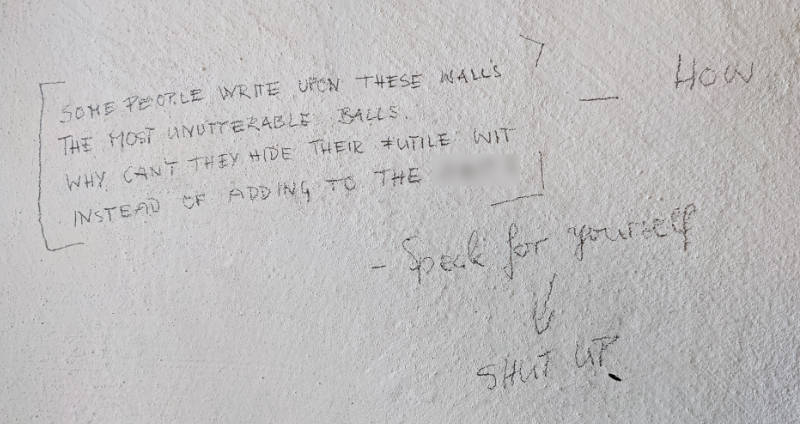 SOME PEOPLE WRITE UPON THESE WALLS
THE MOST UNUTTERABLE BALLS.
WHY CAN'T THEY HIDE THEIR FUTILE WIT
INSTEAD OF ADDING TO THE
— HOW
- Speak for yourself
SHUT UP.